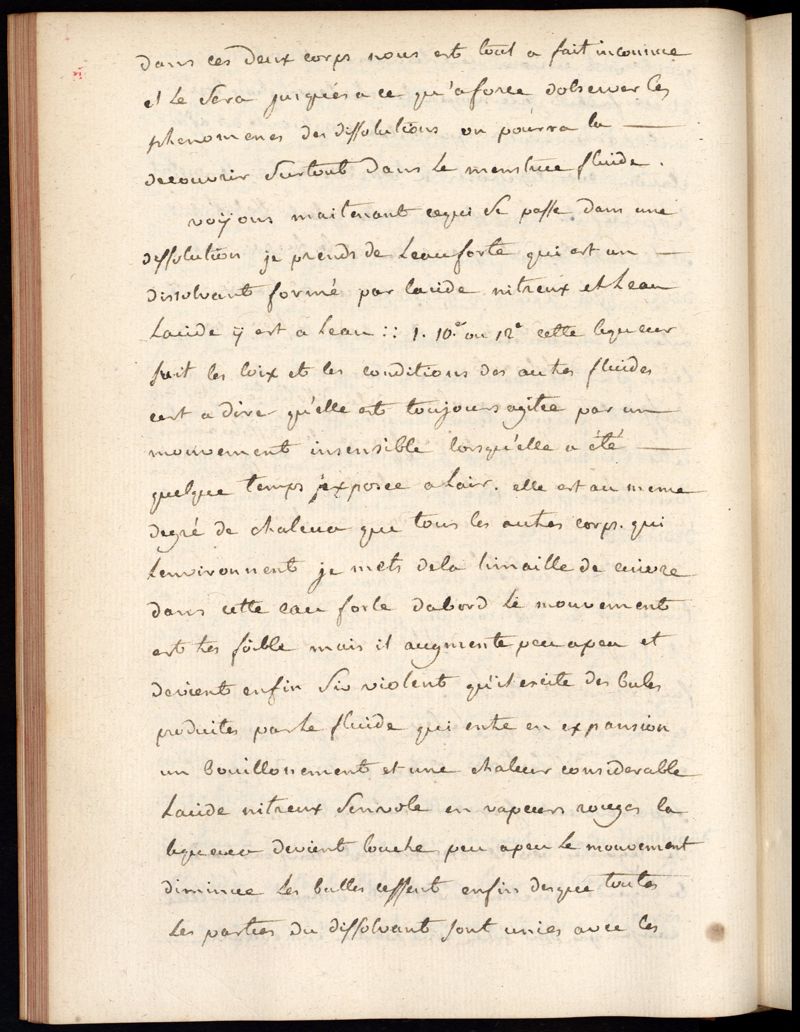 dans ces deux corps nous est tout a fait inconnue
et le sera jusqués a ce qu'aforce dobserver les
phenomenes des dissolutions on pourra la —
decouvrir surtout dans le menstrue fluide.
voijons maitenant cequi se passe dans une
dissolution je prends de leauforte qui est un —
dissolvant formé par lacide nitreux et leau
lacide ÿ est a leau :: 1. 10.e ou 12e cette liqueur
suit les loix et les conditions des autes fluides
cest a dire qu'elle est toujours agitée par un
mouvement insensible lorsqu'elle a été —
quelque temps exposée a lair. elle est au meme
degré de chaleur que tous les autres corps. qui
lenvironnent je mets dela limaille de cuivre
dans cette eau forte dabord le mouvement
est tes foible mais il augmente peu apeu et
devient enfin si violent qu'il excite des bules
produites par le fluide qui ente en expansion
un bouillonement et une chaleur considerable
lacide nitreux senvole en vapeurs rouges la
liqueur devient louche peu apeu le mouvement
diminue les bulles cessent enfin desque toutes
les parties du dissolvant sont unies avec les